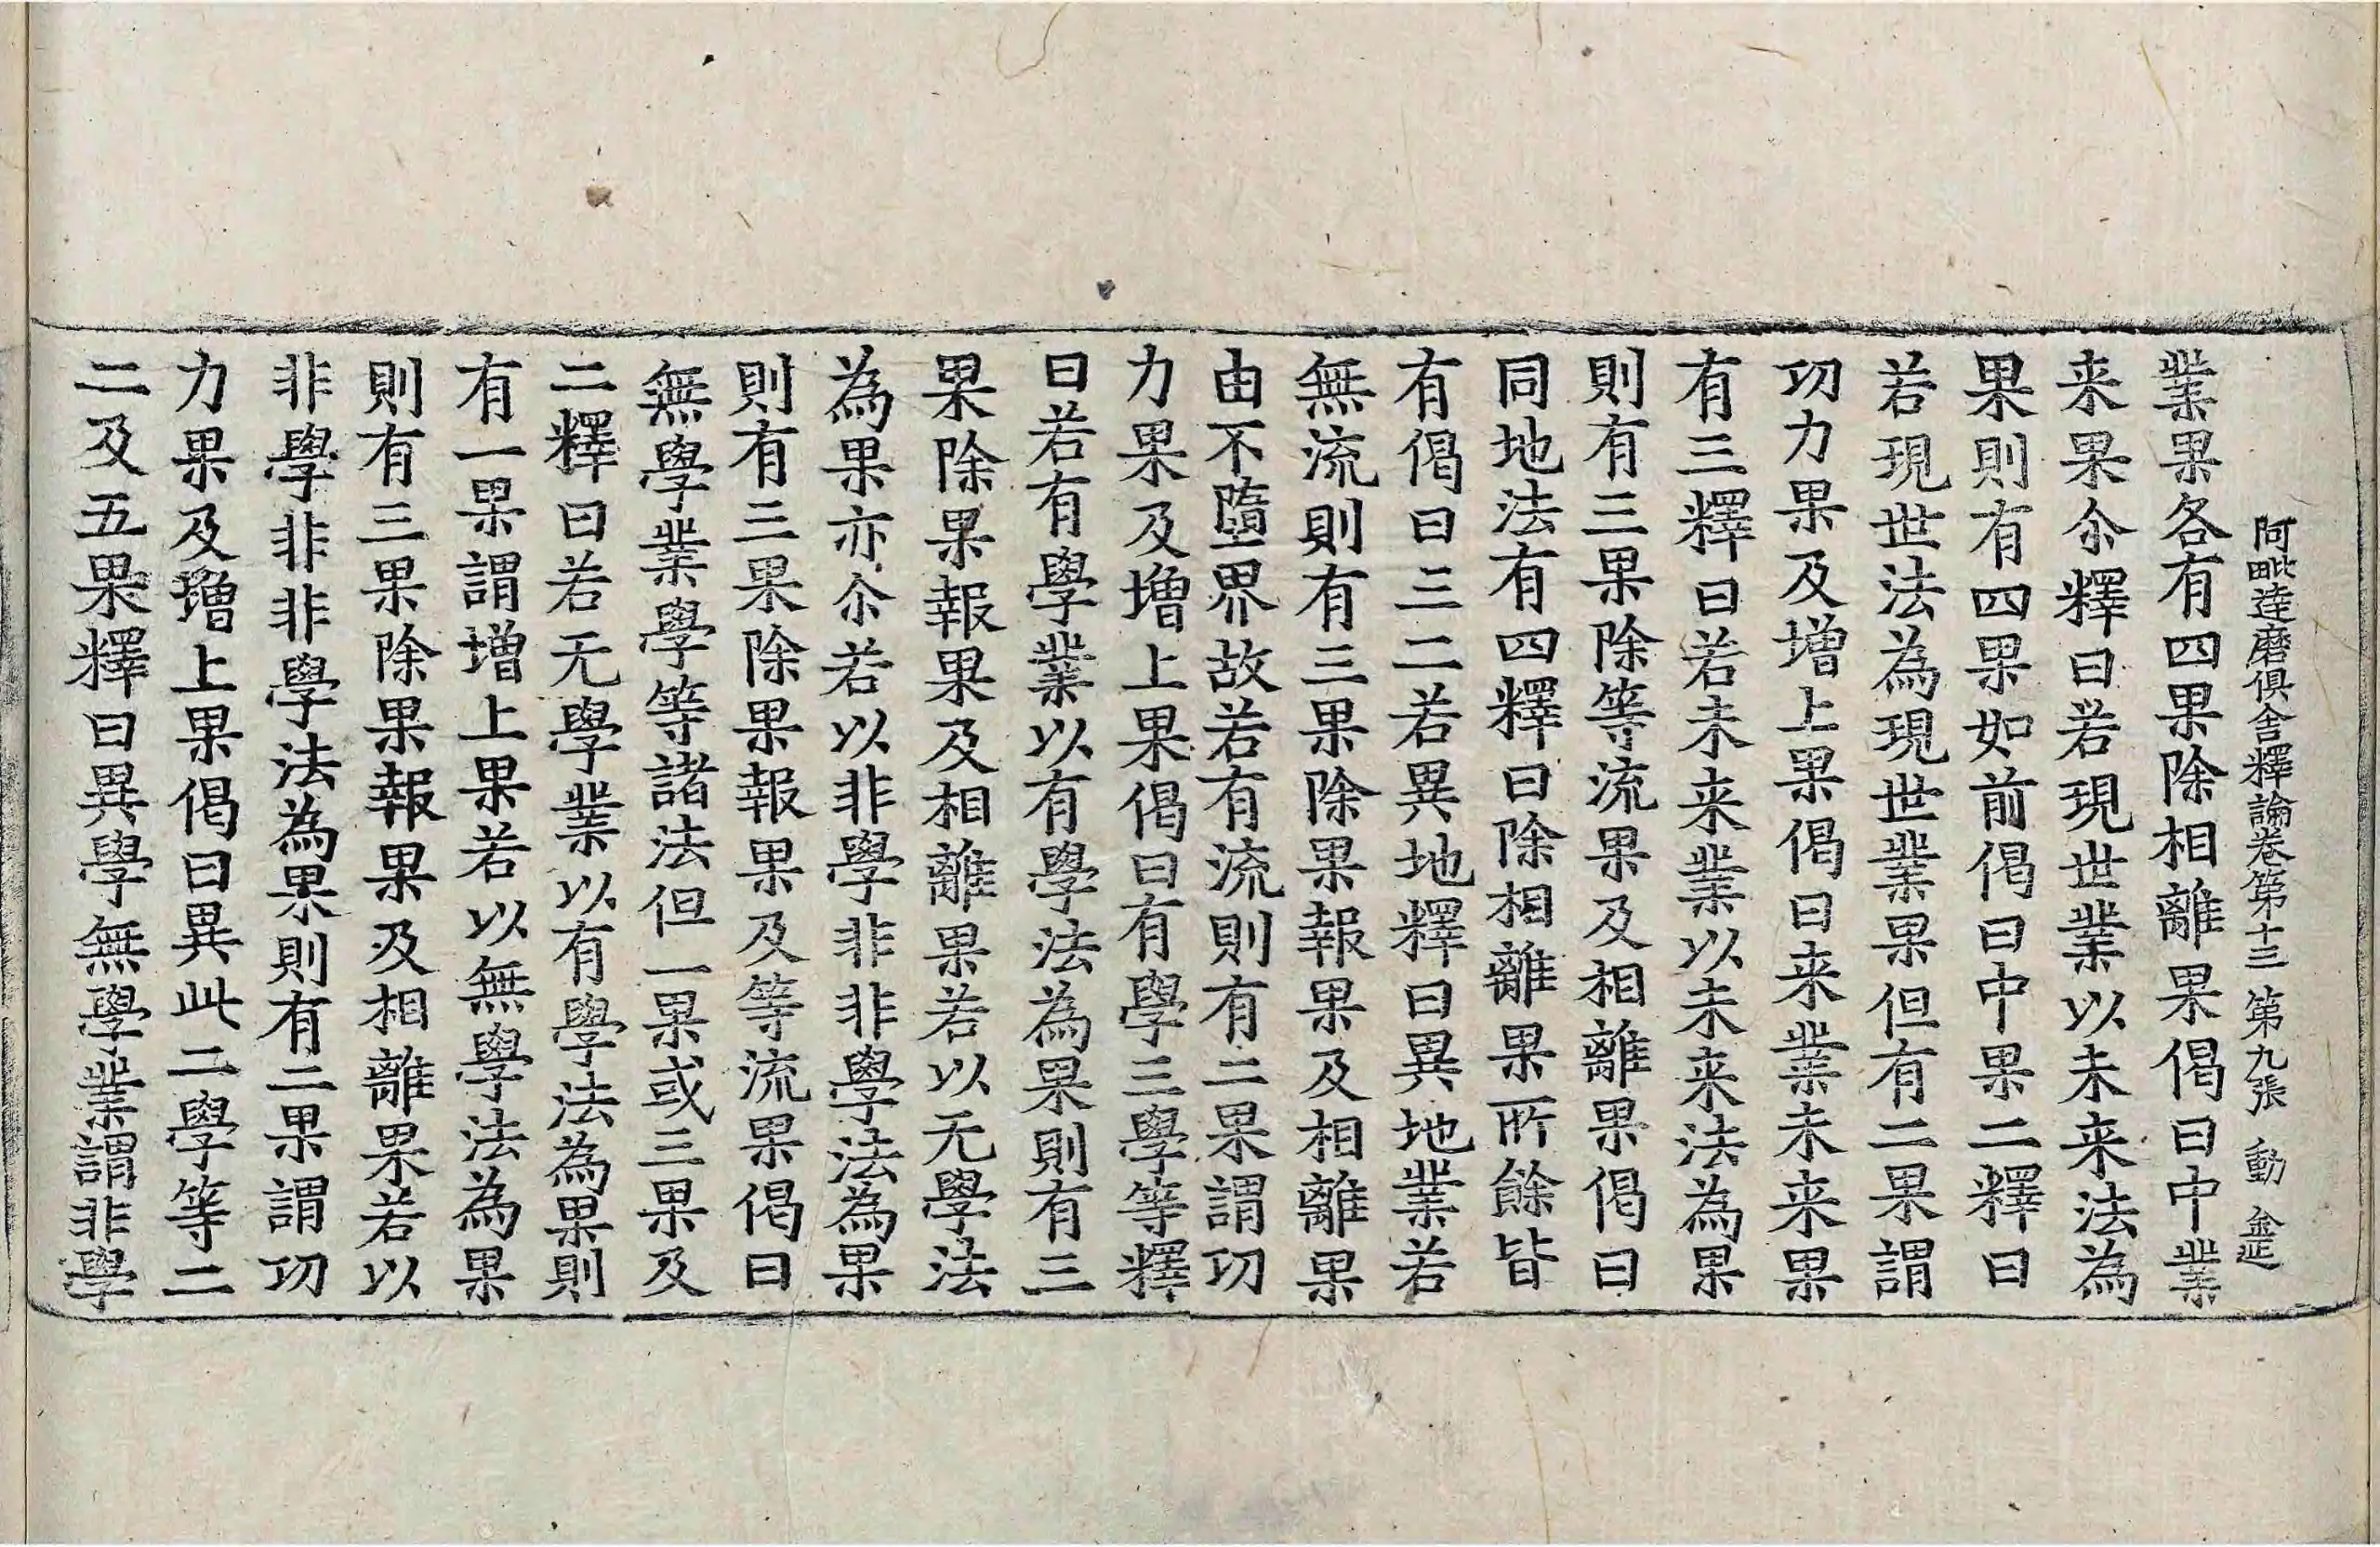 阿毗達磨俱舍釋論卷第十三 第九張 動
業果各有四果除相離果偈曰中業
来果尒釋曰若現世業以未来法為
果則有四果如前偈曰中果二釋曰
若現世法為現世業果但有二果謂
功力果及增上果偈曰来業未来果
有三釋曰若未来業以未来法為果
則有三果除等流果及相離果偈曰
同地法有四釋曰除相離果所餘皆
有偈曰三二若異地釋曰異地業若
無流則有三果除果報果及相離果
由不墮界故若有流則有二果謂功
力果及增上果偈曰有學三學等釋
曰若有學業以有學法為果則有三
果除果報果及相離果若以无學法
為果亦尒若以非學非非學法為果
則有三果除果報果及等流果偈曰
無學業學等諸法但一果或三果及
二釋曰若无學業以有學法為果則
有一果謂增上果若以無學法為果
則有三果除果報果及相離果若以
非學非非學法為果則有二果謂功
力果及增上果偈曰異此二學等二
二及五果釋曰異學無學業謂非學